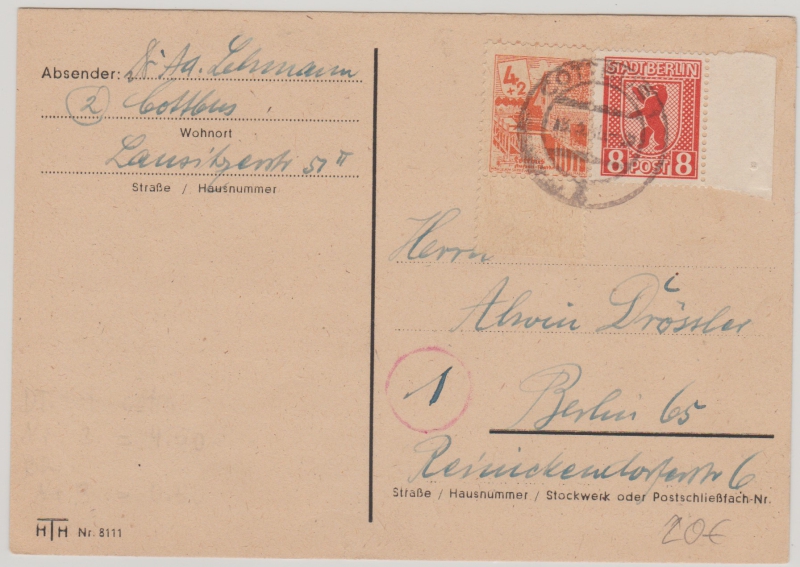 Absender: Dr Ag. Lehmann
(2) Cottbus
Wohnort
Lausitzerstr 51 II
Straße / Hausnummer
HTH Nr. 8111
4
+2
STADT BERLIN
8 POST 8
COTTBUS
Herrn
Alwin Drössler
1
Berlin 65
Reinickendorferstr 6
Straße / Hausnummer / Stockwerk oder Postschließfach-Nr.
20€